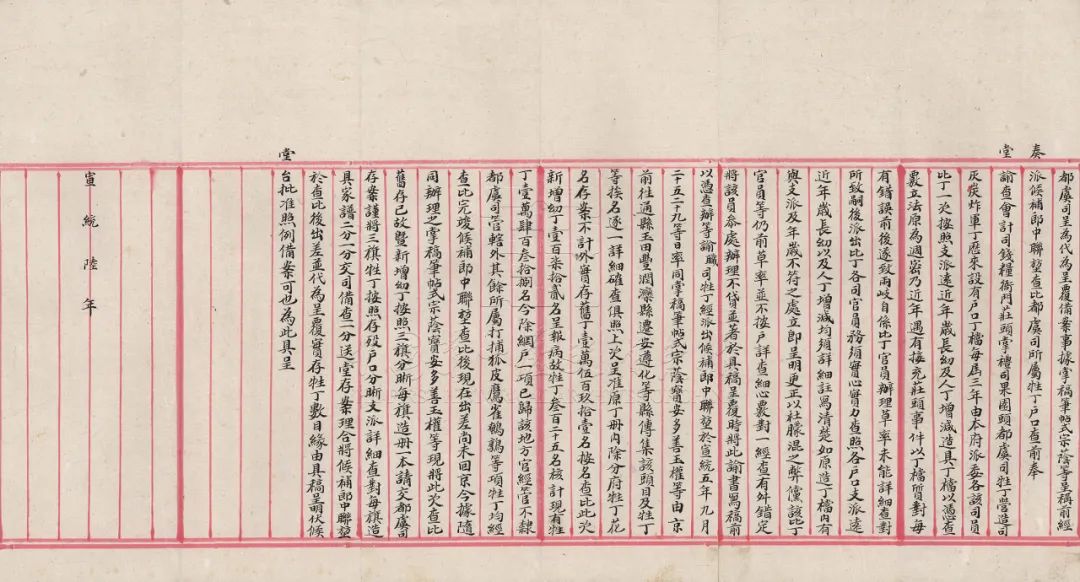 都虞司掌稾筆帖式宗蔭等呈稱前經
派候補郎中聯堃查比都虞司所屬牲丁戶口查前奉
奏
堂
諭查會計司錢糧衙門莊頭掌禮司果園頭都虞司牲丁營造司
灰炭炸軍丁歷來設有戶口丁檔每屆三年由本府派委各該司員
比丁一次按照支派遠近年歲長幼及人丁增減造具丁檔以憑查
覈立法原為週密乃近年遇有接充莊頭事件以丁檔質對每
有錯誤前後遂致兩岐自係比丁官員辦理草率未能詳查對
所致嗣後派出比丁各司官員務須實心實力查照各戶口支派遠
近年歲長幼以及人丁增減均須詳細註寫清楚如原造丁檔內有
與支派及年歲不符之處立即呈明更正以杜朦混之弊儻該比丁
官員等仍前草率並不按戶詳查細心覈對一經查有舛錯定
將該員叅處辦理不貸並著於具稾呈覆時將此諭書寫稾前
以憑查辦等諭職司牲丁經派出候補郎中聯堃於宣統五年九月
二十五二十九等日率同掌稾筆帖式宗蔭寶安多善玉權等由京
前往通縣玉田豐潤灤縣遷安遵化等縣傳集該頭目及牲丁
等挨名逐一詳細確查俱照上次呈准原丁冊內除分府牲丁花
名存案不計外實存舊丁壹萬伍百玖拾壹名按名查比此次
新增幼丁壹百柒拾貳名呈報病故牲丁叁百二十五名核計現有牲
丁壹萬肆百叁拾捌名今除網戶一項已歸該地方官經管不隸
都虞司管轄外其餘所屬打捕狐皮鷹雀鵪鶉等項牲丁均經
查比完竣候補郎中聯堃查比後現在出差尚未回京今據隨
同辦理之掌稾筆帖式宗蔭寶安多善玉權等現將此次查比
舊存已故暨新增幼丁按照三旗分晰每旗造冊一本請交都虞司
存案謹將三旗牲丁按照存歿戶口分晰支派詳細查對每旗造
具家譜二分一分交司備查一分送堂存案理合將候補郎中聯堃
於查比後出差並代為呈覆實存牲丁數目緣由具稾呈明伏候
堂
台批准照例備案可也為此具呈
宣統陸年